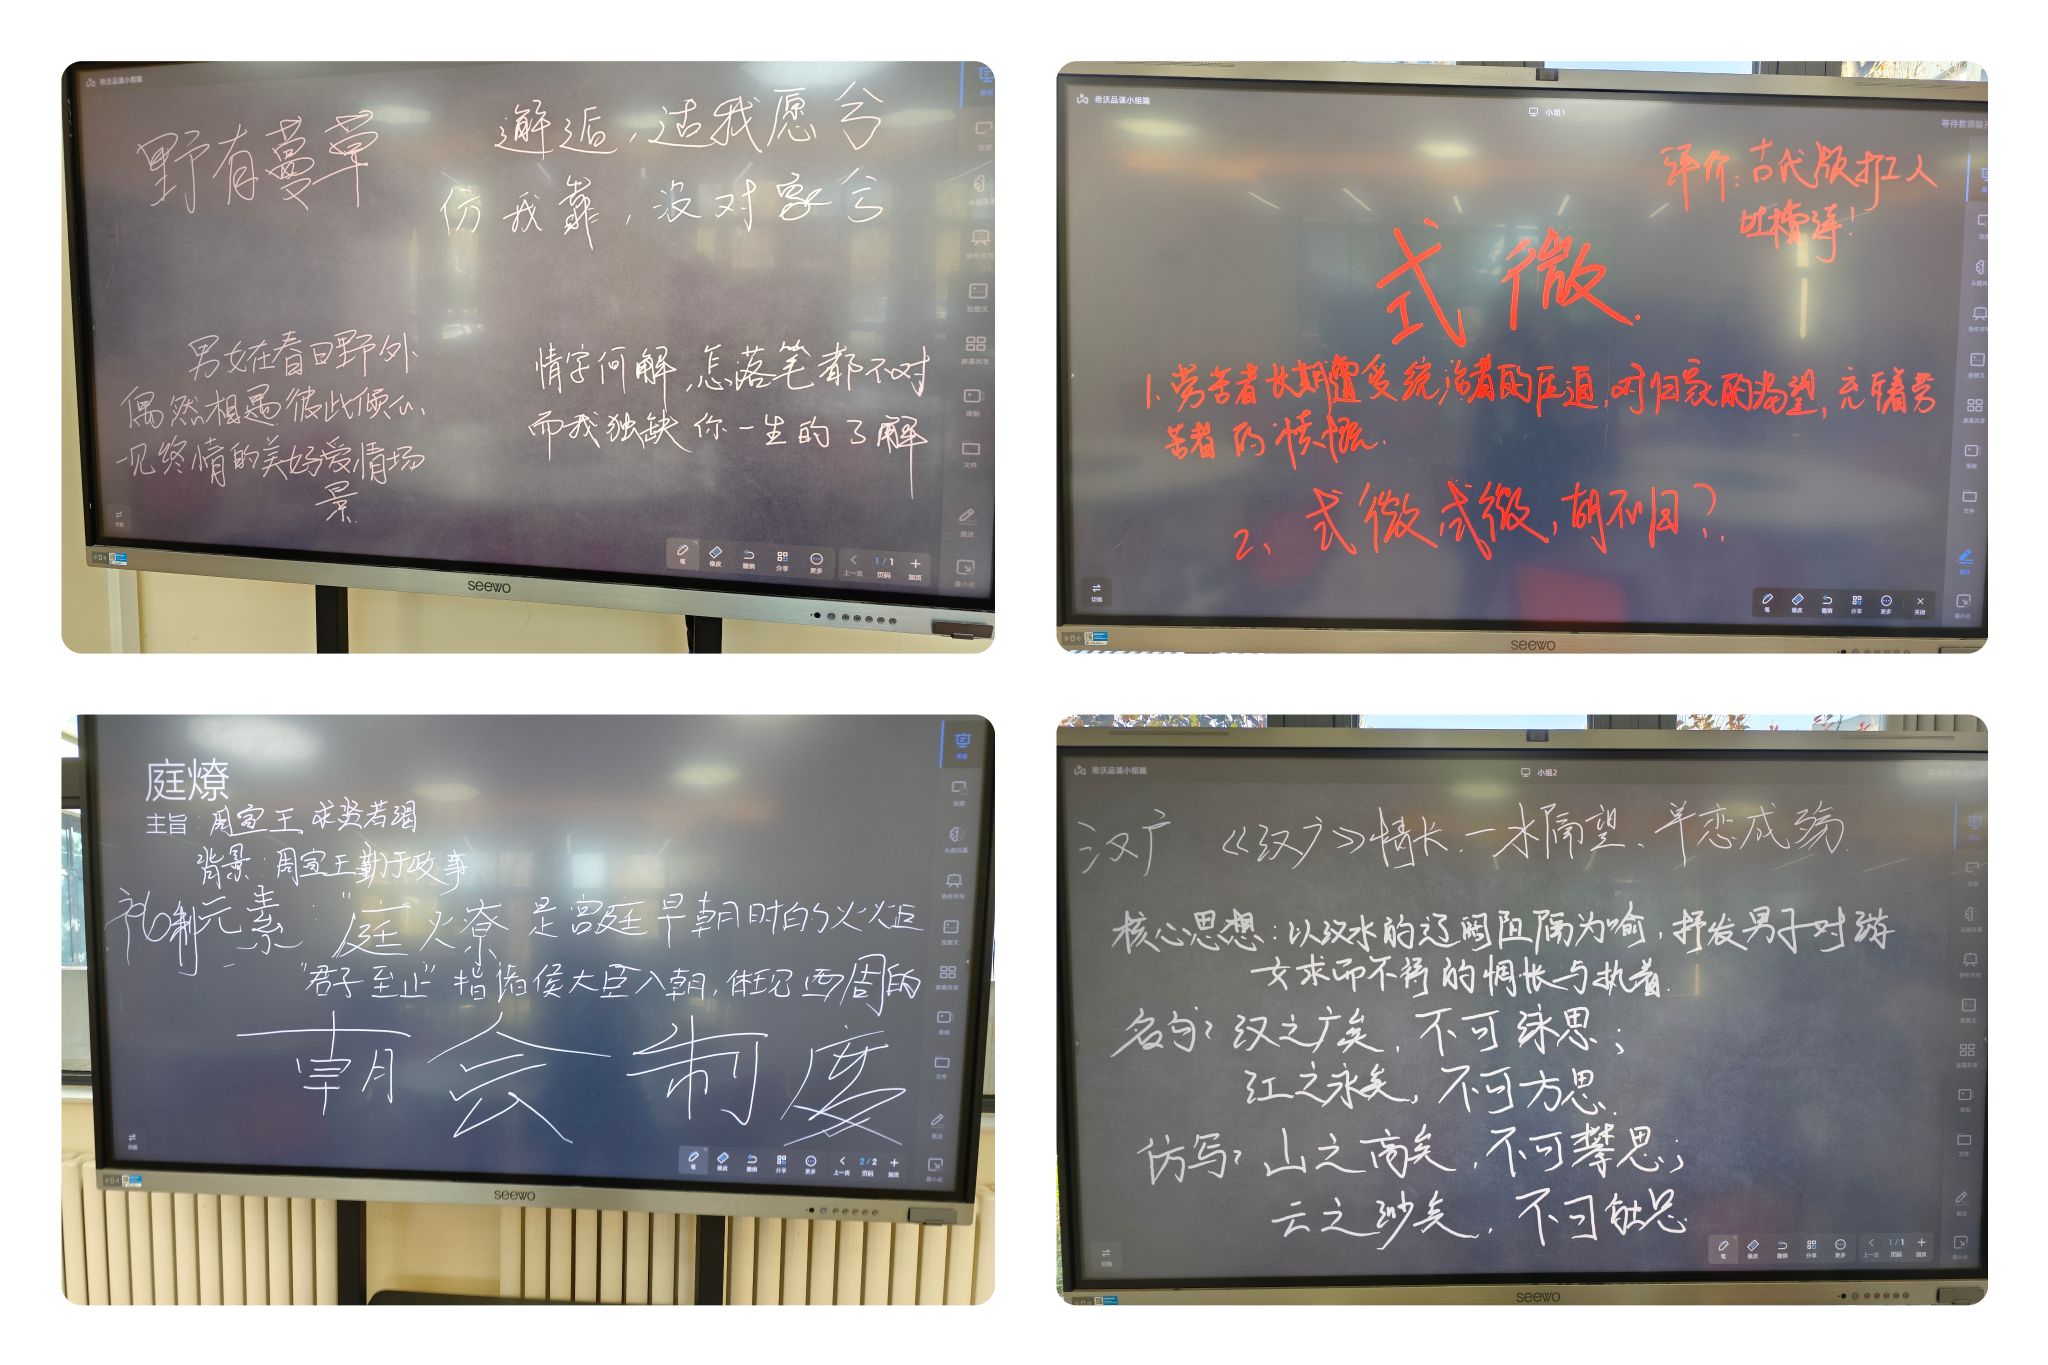 希沃品课小组端
野有蔓草
邂逅，适我愿兮
仿我靠，没对家兮
男女在春日野外
偶然相遇彼此倾心、
一见终情的美好爱情场
景
情字何解，怎落笔都不对
而我独缺你一生的了解
切换
笔 橡皮 撤销 分享 更多 上一页 1/1 页码 加页
文件
批注
最小化
seewo
希沃品课小组端
小组1
等待教师端开
评价：古代版打工人
吐槽诗！
式微
1、劳苦者长期遭受统治者的压迫，对归家的渴望，充满着劳
苦者的愤慨.
2、式微式微，胡不归？
切换
笔 橡皮 撤销 分享 更多 关闭
文件
最小化
seewo
庭燎
主旨：周宣王求贤若渴
背景：周宣王勤于政事
礼制元素：“庭燎是宫廷早朝时的火炬
“君子至止”指诸侯大臣入朝，体现西周的
朝会制度
切换
笔 橡皮 撤销 分享 更多 上一页 2/2 页码 加页
文件
批注
最小化
seewo
希沃品课小组端
小组2
汉广 《汉广》情长.一水隔望、单恋成殇.
核心思想：以汉水的辽阔阻隔为喻，抒发男子对游
女求而不得的惆怅与执着.
名句：汉之广矣，不可泳思；
江之永矣，不可方思.
仿写：山之高矣，不可攀思；
云之渺矣，不可
切换
笔 橡皮 撤销 分享 更多 上一页 1/1 页码 加页
seewo